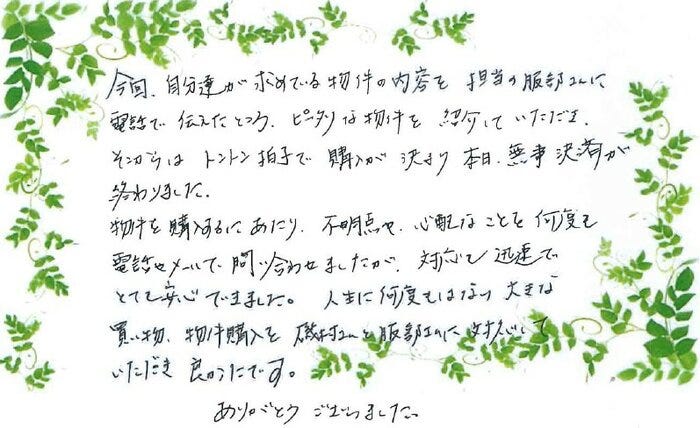 今回、自分達が求めている物件の内容を担当の服部さんに
電話で伝えたところ、ピッタリな物件を紹介していただき、
そこからはトントン拍子で購入が決まり本日、無事決済が
終わりました。
物件を購入するにあたり、不明点や、心配なことを何度も
電話やメールで問い合わせましたが、対応も迅速で
とても安心できました。人生に何度もはない大きな
買い物、物件購入を磯村さんと服部さんに対応して
いただき良かったです。
ありがとうございました。